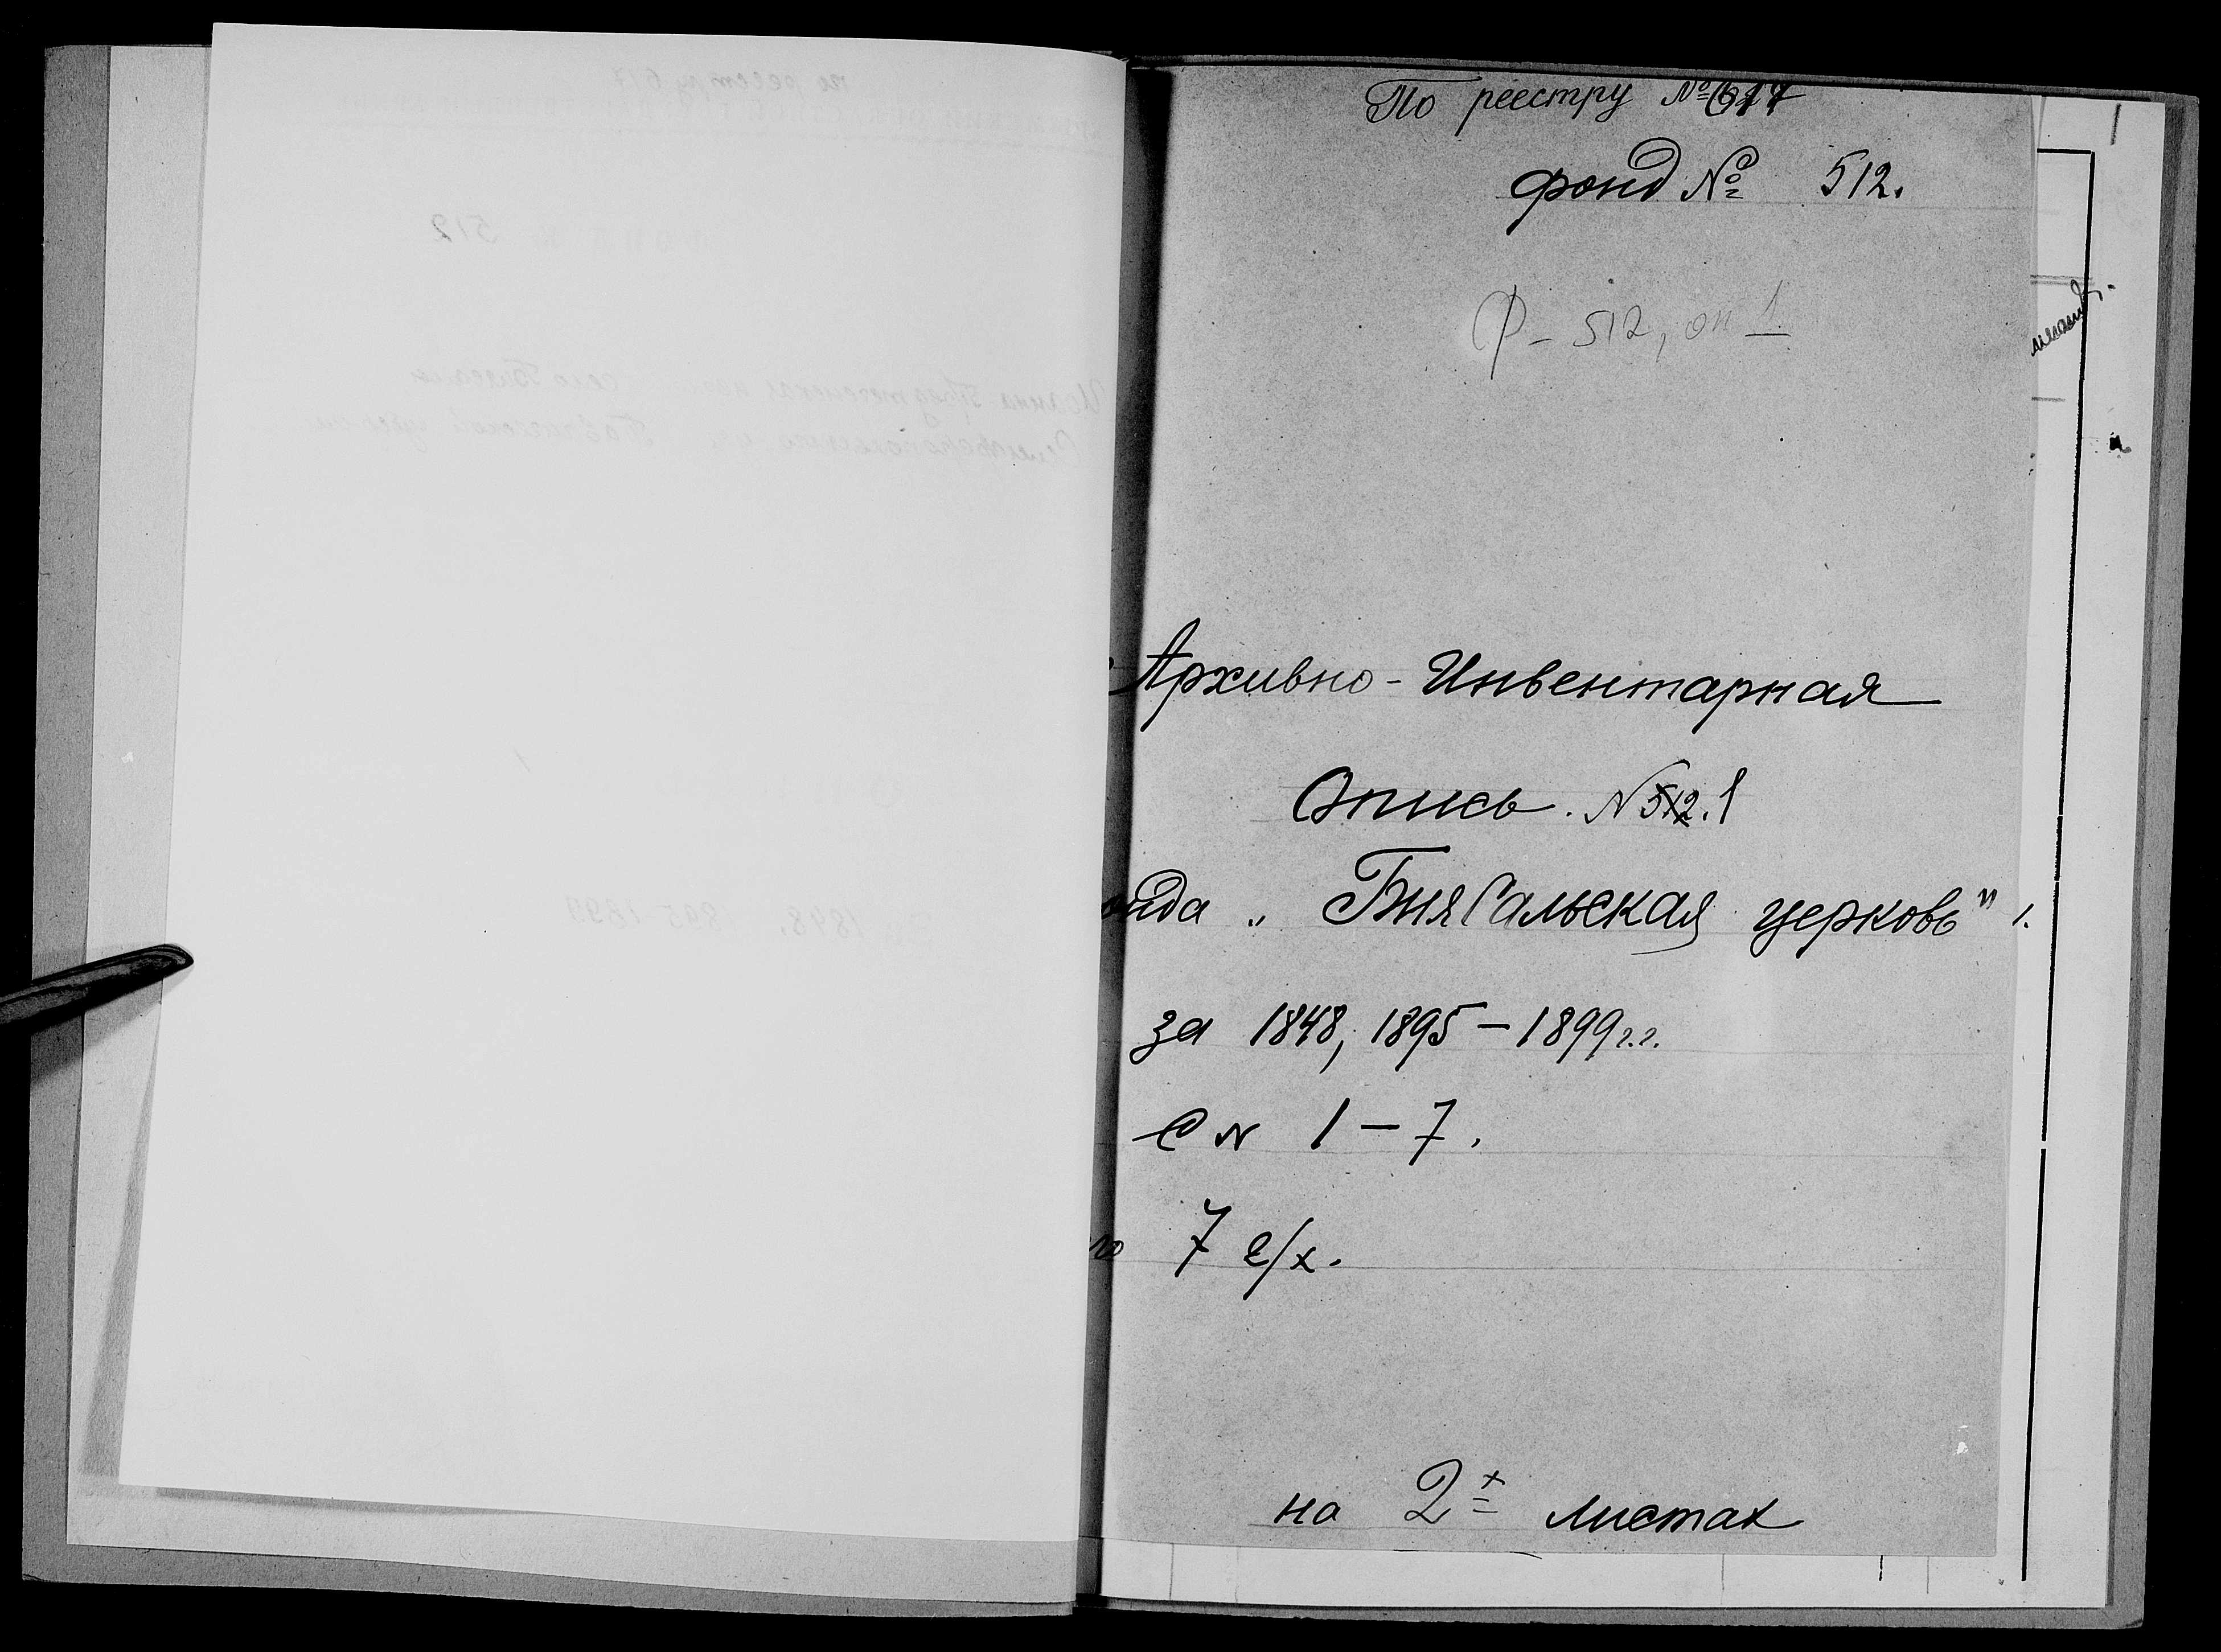 По реестру № 617
фонд № 512.
Ф- 512, оп 1
Архивно-Инвентарная
Опись. N 512. 1
онда „ БияСальская церковь" г.
за 1848, 1895 – 1899 г.г.
с N 1 – 7.
го 7 е/х.
на 2х листах